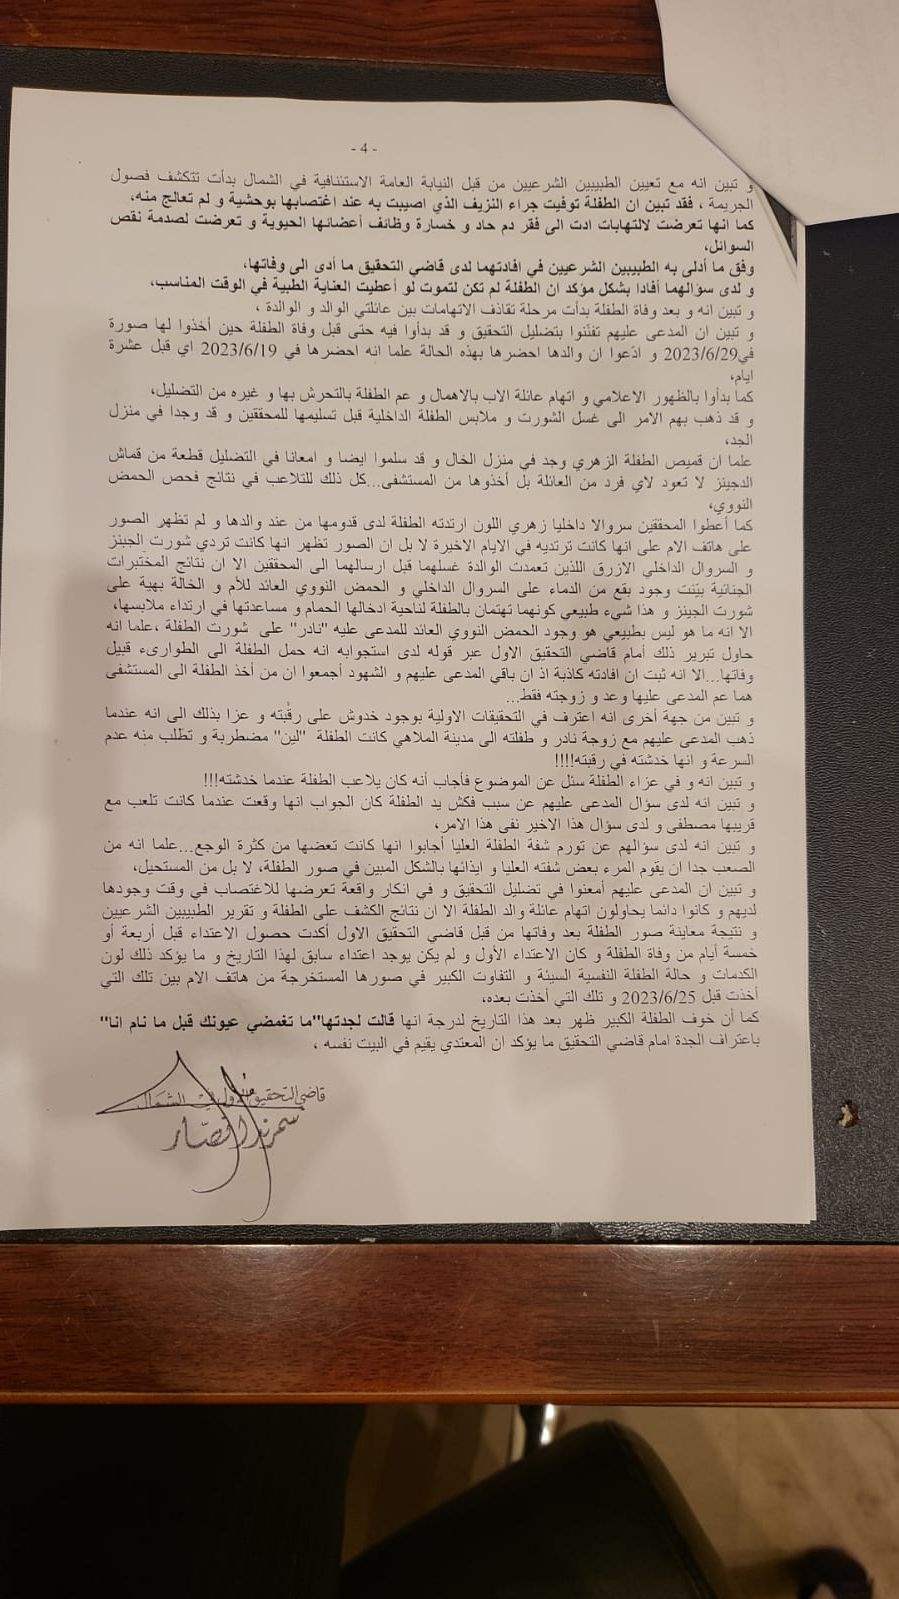 - 4 -
و تبين انه مع تعيين الطبيبين الشرعيين من قبل النيابة العامة الاستئنافية في الشمال بدأت تتكشف فصول
الجريمة ، فقد تبين ان الطفلة توفيت جراء النزيف الذي اصيبت به عند اغتصابها بوحشية و لم تعالج منه،
كما انها تعرضت لالتهابات ادت الى فقر دم حاد و خسارة وظائف أعضائها الحيوية و تعرضت لصدمة نقص
السوائل،
وفق ما أدلى به الطبيبين الشرعيين في افادتهما لدى قاضي التحقيق ما أدى الى وفاتها،
و لدى سؤالهما أفادا بشكل مؤكد ان الطفلة لم تكن لتموت لو أعطيت العناية الطبية في الوقت المناسب،
و تبين انه و بعد وفاة الطفلة بدأت مرحلة تقاذف الاتهامات بين عائلتي الوالد و الوالدة ،
و تبين ان المدعى عليهم تفنّنوا بتضليل التحقيق و قد بدأوا فيه حتى قبل وفاة الطفلة حين أخذوا لها صورة
في2023/6/29 و ادّعوا ان والدها احضرها بهذه الحالة علما انه احضرها في 2023/6/19 اي قبل عشرة
ايام،
كما بدأوا بالظهور الاعلامي و اتهام عائلة الاب بالاهمال و عم الطفلة بالتحرش بها و غيره من التضليل،
و قد ذهب بهم الامر الى غسل الشورت و ملابس الطفلة الداخلية قبل تسليمها للمحققين و قد وجدا في منزل
الجد،
علما ان قميص الطفلة الزهري وجد في منزل الخال و قد سلموا ايضا و امعانا في التضليل قطعة من قماش
الدجينز لا تعود لاي فرد من العائلة بل أخذوها من المستشفى...كل ذلك للتلاعب في نتائج فحص الحمض
النووي،
كما أعطوا المحققين سروالا داخليا زهري اللون ارتدته الطفلة لدى قدومها من عند والدها و لم تظهر الصور
على هاتف الام على انها كانت ترتديه في الايام الاخيرة لا بل ان الصور تظهر انها كانت تردي شورت الجينز
و السروال الداخلي الازرق اللذين تعمدت الوالدة غسلهما قبل ارسالهما الى المحققين الا ان نتائج المختبرات
الجنائية بيّنت وجود بقع من الدماء على السروال الداخلي و الحمض النووي العائد للأم و الخالة بهية على
شورت الجينز و هذا شيء طبيعي كونهما تهتمان بالطفلة لناحية ادخالها الحمام و مساعدتها في ارتداء ملابسها،
الا انه ما هو ليس بطبيعي هو وجود الحمض النووي العائد للمدعى عليه "نادر" على شورت الطفلة ،علما انه
حاول تبرير ذلك أمام قاضي التحقيق الاول عبر قوله لدى استجوابه انه حمل الطفلة الى الطوارىء قبيل
وفاتها...الا انه ثبت ان افادته كاذبة اذ ان باقي المدعى عليهم و الشهود أجمعوا ان من أخذ الطفلة الى المستشفى
هما عم المدعى عليها وعد و زوجته فقط...
و تبين من جهة أخرى انه اعترف في التحقيقات الاولية بوجود خدوش على رقبته و عزا بذلك الى انه عندما
ذهب المدعى عليهم مع زوجة نادر و طفلته الى مدينة الملاهي كانت الطفلة "لين" مضطربة و تطلب منه عدم
السرعة و انها خدشته في رقبته!!!!
و تبين انه و في عزاء الطفلة سئل عن الموضوع فأجاب أنه كان يلاعب الطفلة عندما خدشته!!!
و تبين انه لدى سؤال المدعى عليهم عن سبب فكش يد الطفلة كان الجواب انها وقعت عندما كانت تلعب مع
قريبها مصطفى و لدى سؤال هذا الاخير نفى هذا الامر،
و تبين انه لدى سؤالهم عن تورم شفة الطفلة العليا أجابوا انها كانت تعضها من كثرة الوجع...علما انه من
الصعب جدا ان يقوم المرء بعض شفته العليا و ايذائها بالشكل المبين في صور الطفلة، لا بل من المستحيل،
و تبين ان المدعى عليهم أمعنوا في تضليل التحقيق و في انكار واقعة تعرضها للاغتصاب في وقت وجودها
لديهم و كانوا دائما يحاولون اتهام عائلة والد الطفلة الا ان نتائج الكشف على الطفلة و تقرير الطبيبين الشرعيين
و نتيجة معاينة صور الطفلة بعد وفاتها من قبل قاضي التحقيق الاول أكدت حصول الاعتداء قبل أربعة أو
خمسة أيام من وفاة الطفلة و كان الاعتداء الأول و لم يكن يوجد اعتداء سابق لهذا التاريخ و ما يؤكد ذلك لون
الكدمات و حالة الطفلة النفسية السيئة و التفاوت الكبير في صورها المستخرجة من هاتف الام بين تلك التي
أخذت قبل 2023/6/25 و تلك التي أخذت بعده،
كما أن خوف الطفلة الكبير ظهر بعد هذا التاريخ لدرجة انها قالت لجدتها"ما تغمضي عيونك قبل ما نام انا"
باعتراف الجدة امام قاضي التحقيق ما يؤكد ان المعتدي يقيم في البيت نفسه ،
قاضي التحقيق الاول في الشمال
سمرندا نصّار